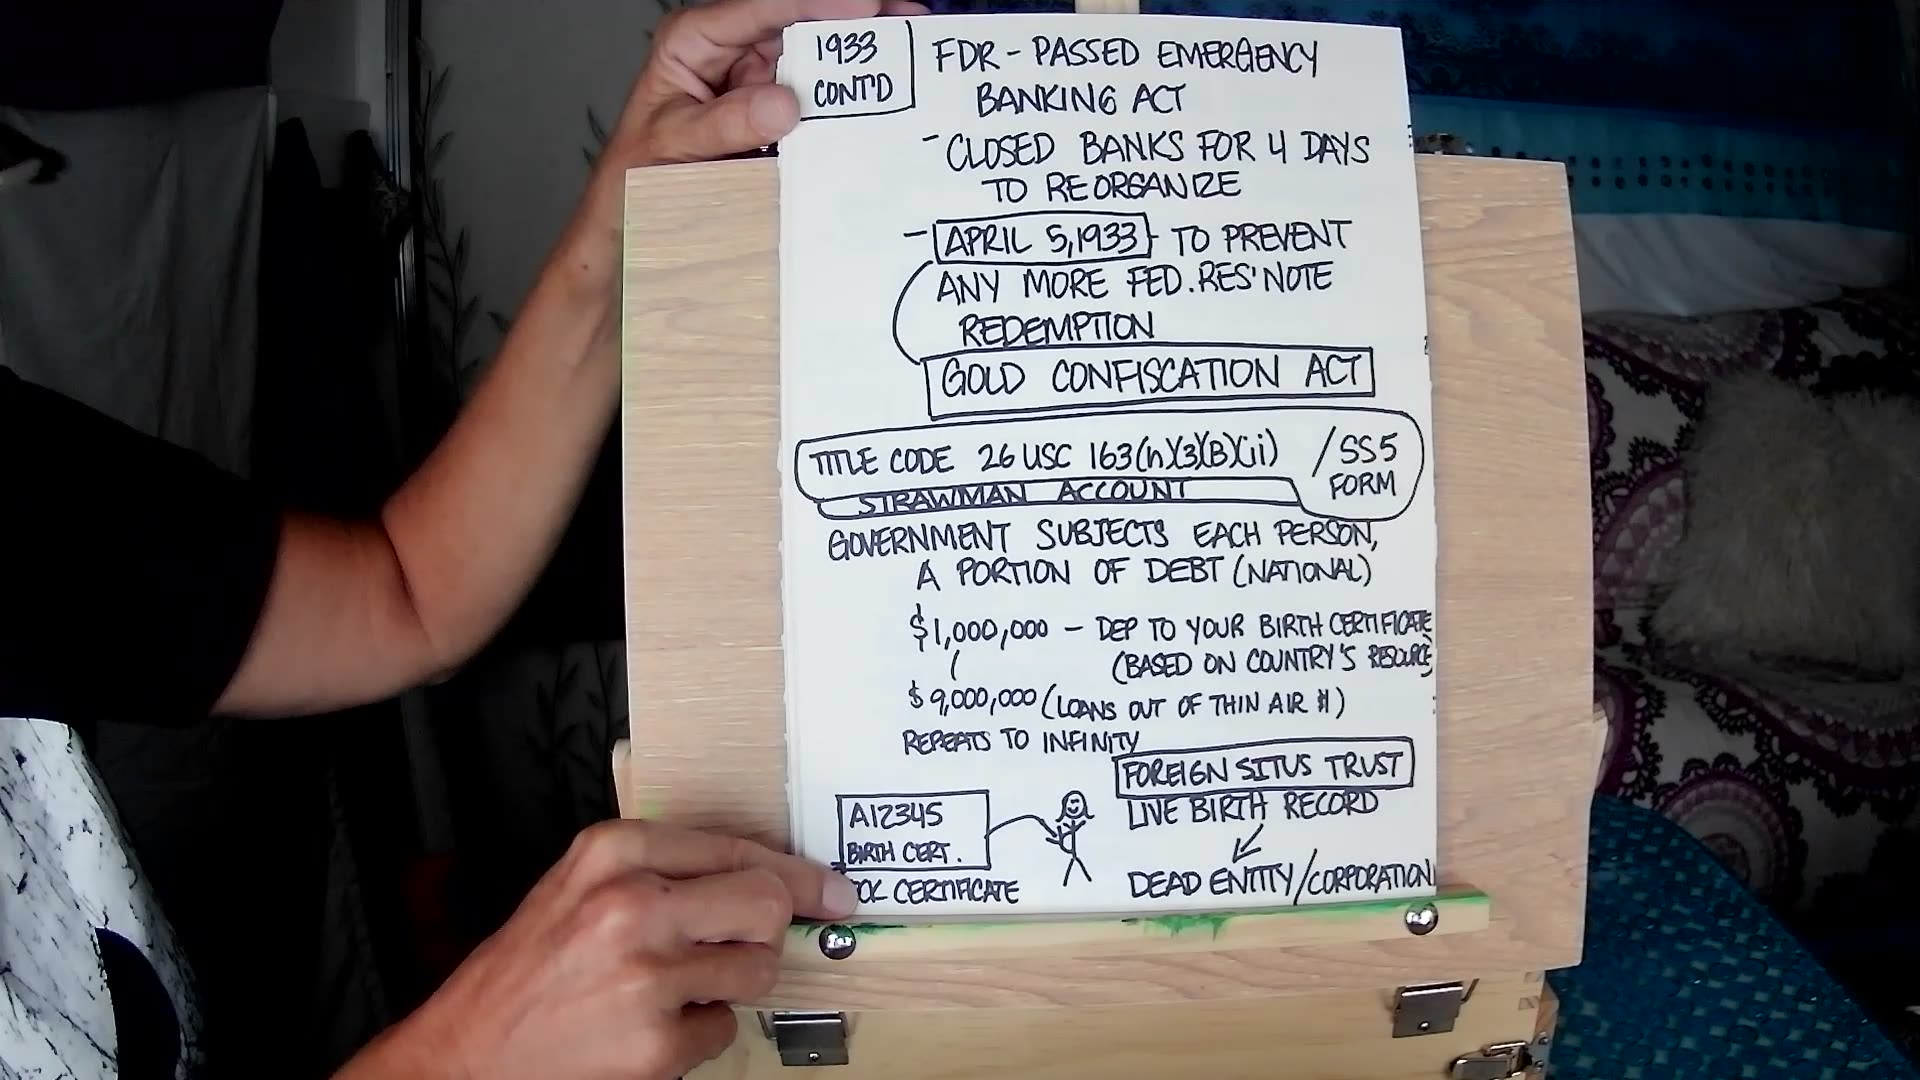 1933
CONT'D
FDR - PASSED EMERGENCY
BANKING ACT
- CLOSED BANKS FOR 4 DAYS
TO REORGANIZE
- APRIL 5, 1933 - TO PREVENT
ANY MORE FED. RES' NOTE
REDEMPTION
GOLD CONFISCATION ACT
TITLE CODE 26 USC 163(h)(3)(B)(ii) / SS5
FORM
STRAWMAN ACCOUNT
GOVERNMENT SUBJECTS EACH PERSON,
A PORTION OF DEBT (NATIONAL)
$1,000,000 - DEP TO YOUR BIRTH CERTIFICATE
(BASED ON COUNTRY'S RESOURCE)
$9,000,000 (LOANS OUT OF THIN AIR $)
REPEATS TO INFINITY
FOREIGN SITUS TRUST
LIVE BIRTH RECORD
DEAD ENTITY/CORPORATION
A12345
BIRTH CERT.
CERTIFICATE